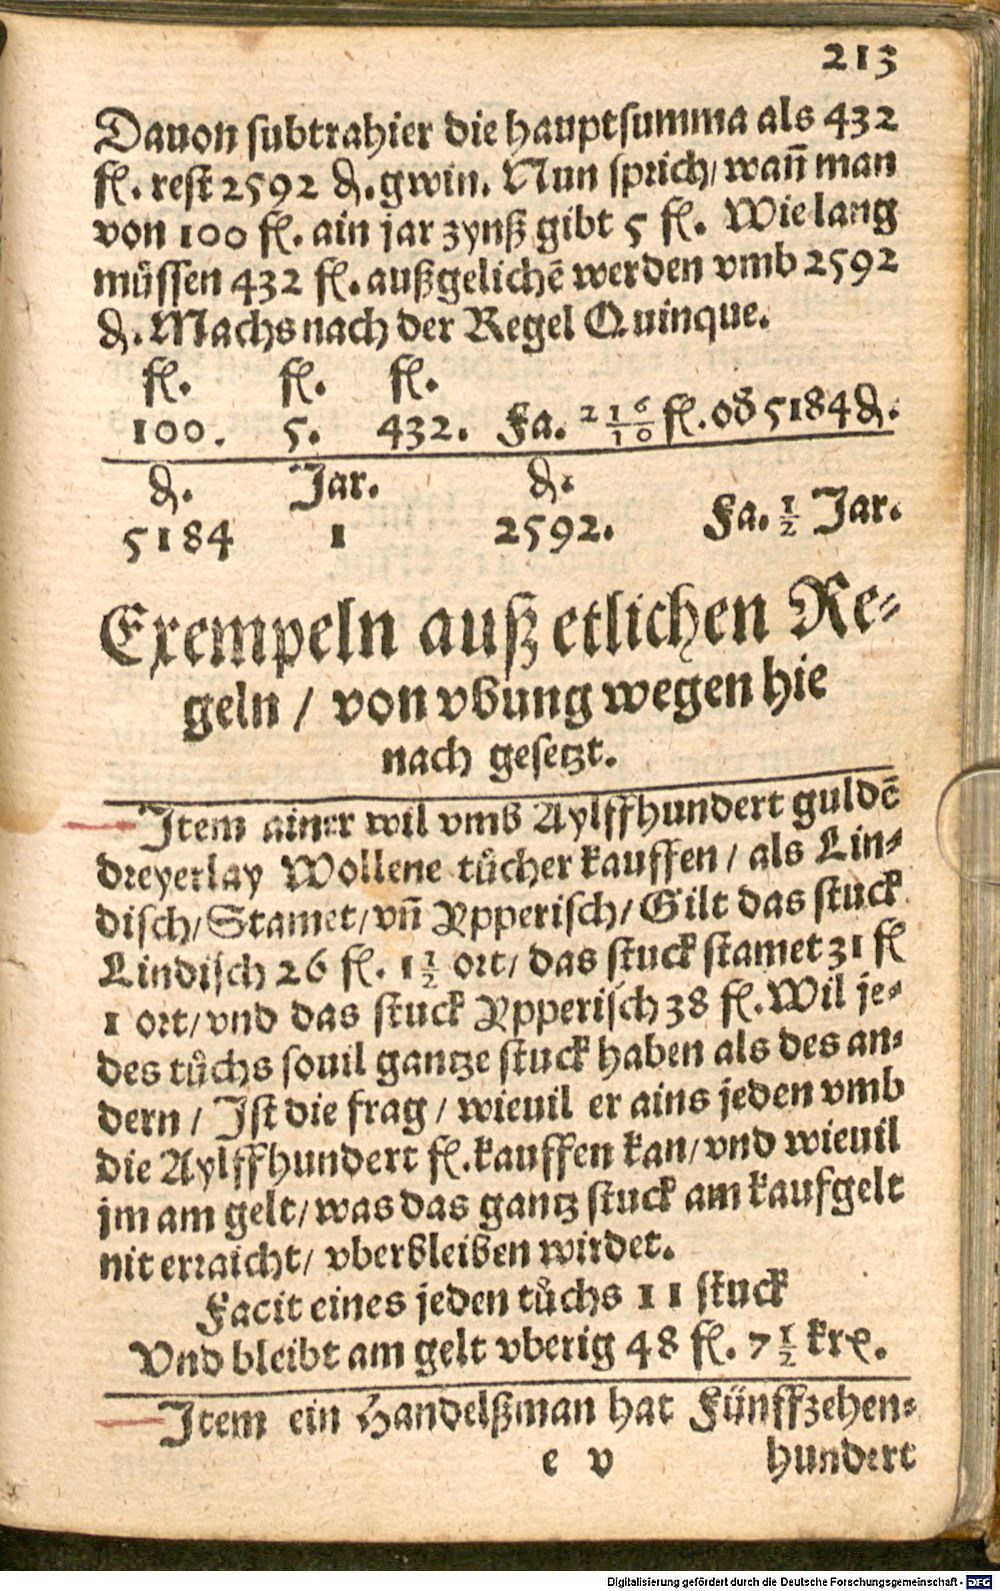 213
Dauon subtrahier die hauptsumma als 432
fl. rest 2592 ₰. gwin. Nun sprich/ wañ man
von 100 fl. ain jar zynß gibt 5 fl. Wie lang
müssen 432 fl. außgelichẽ werden vmb 2592
₰. Machs nach der Regel Quinque.
fl. fl. fl.
100. 5. 432. Fa. 21 6/10 fl. od̕ 5184 ₰.
₰. Jar. ₰.
5184 1 2592. Fa. ½ Jar.
Exempeln auß etlichen Re-
geln / von vbung wegen hie
nach gesetzt.
Item ainer wil vmb Aylffhundert guldẽ
dreyerlay Wollene tuͦcher kauffen / als Lin-
disch/ Stamet/ vñ Ypperisch/ Gilt das stuck
Lindisch 26 fl. 1½ ort/ das stuck stamet 31 fl
1 ort/ vnd das stuck Ypperisch 38 fl. Wil je-
des tuͦchs souil gantze stuck haben als des an-
dern / Ist die frag / wieuil er ains jeden vmb
die Aylffhundert fl. kauffen kan/ vnd wieuil
jm am gelt/ was das gantz stuck am kaufgelt
nit erraicht/ vberbleiben wirdet.
Facit eines jeden tuͦchs 11 stuck
Vnd bleibt am gelt vberig 48 fl. 7½ krꝛ.
Item ein Handelßman hat Fünffzehen-
e v hundert
Digitalisierung gefördert durch die Deutsche Forschungsgemeinschaft - DFG